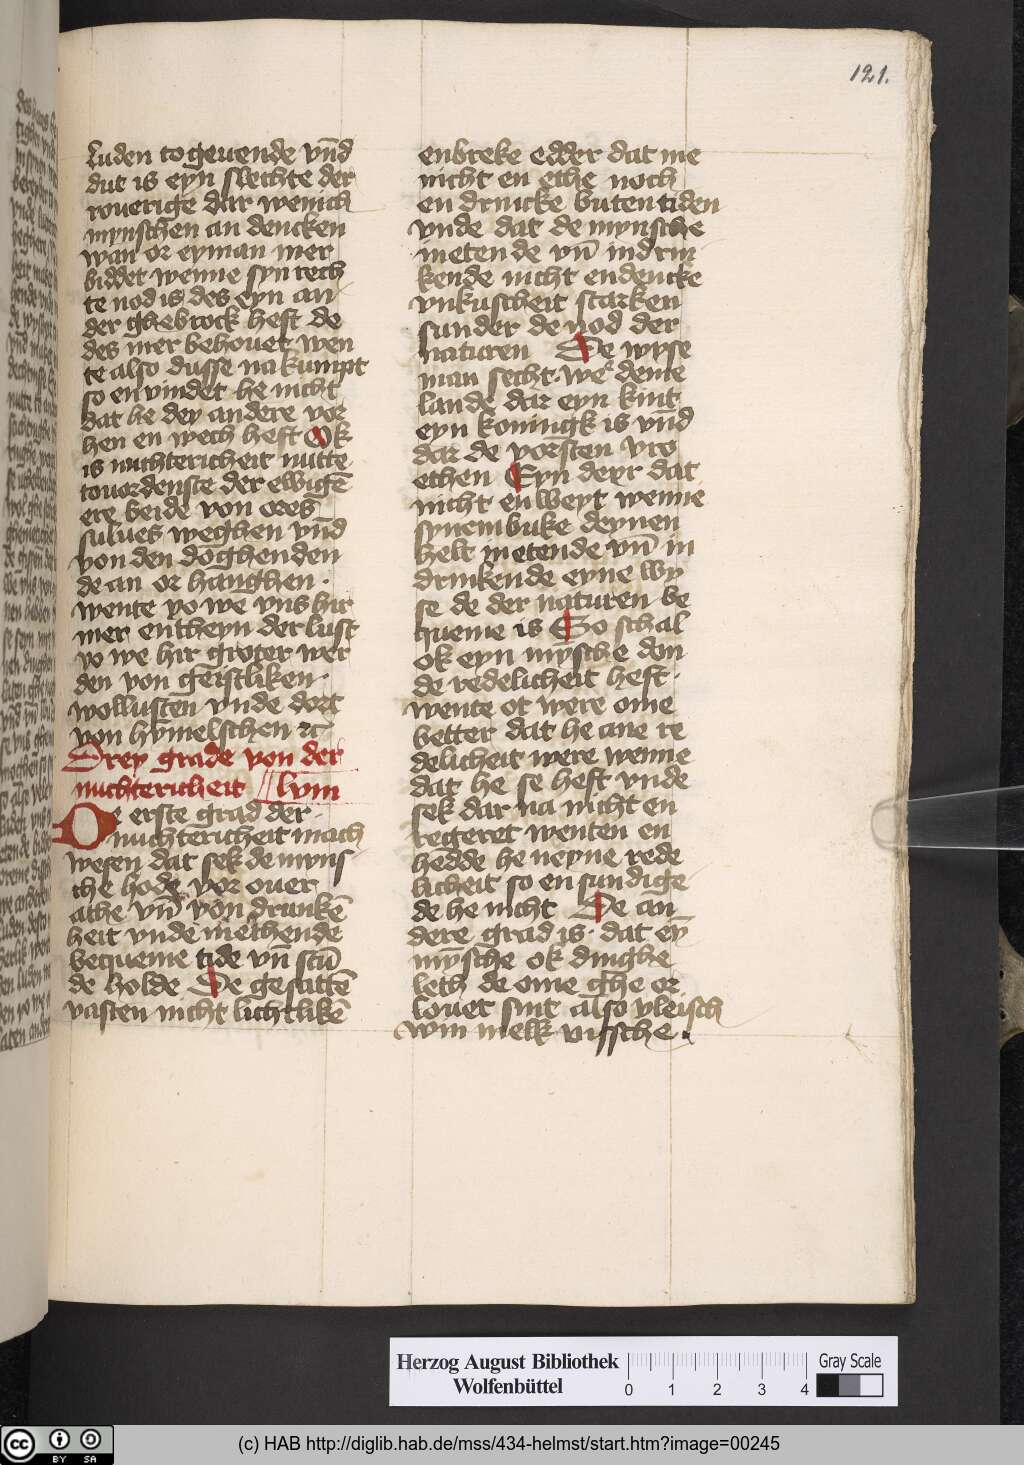 121.
luden to geuende vn̄d
dut is eyn slechte der
rouerige dar wenich
mynschen an dencken
wan or eyman mer
biddet wenne syn rech
te nod is des eyn an
der ghebrock heft de
des mer behouet wen
te also dusse na kumpt
so en vindet he nicht
dat he dey andere vor
hen en wech heft Ok
is nuchtericheit nutte
touordenste der ewigē
ere beide von ores
sulues weghen vn̄d
von den doghenden
de an or hanghen ·
wente yo we vns hir
mer entheyn der lust
yo we hir groter wer
den von geistliken ·
wollusten vnde dort
von hymelschen ꝛc
Drey grade von der
nuchtericheit lviii
De erste grad der
nuchtericheit mach
wesen dat sek de myns
che hode vor ouer
athe vn̄ von drunkē
heit vnde methende
bequeme tide vn̄ stūn
de holde De gesattē
vasten nicht lichtlikē
enbreke edder dat me
nicht en ethe noch
en drincke buten tiden
vnde dat de mynsche
metende vn̄ in drin
kende nicht endencke
vnkuscheit starken
sunder de nod der
naturen De wyse
man secht · we deme
lande dar eyn kint
eyn koningk is vn̄d
dar de vorsten vro
ethen Eyn deyr dat
nicht en weyt wenne
synem buke deynen
helt in etende vn̄ in
drinkende eyne wy
se de der naturen be
queme is So schal
ok eyn mȳsche don
de redelicheit heft ·
wente ot were ome
better dat he ane re
delicheit were wenne
dat he se heft vnde
sek dar na nicht en
regeret wenten en
hedde he neyne rede
licheit so en sundige
de he nicht De an
dere grad is · dat eȳ
mȳsche ok dinghe
leth de ome ghe or
louet sint also vleisch
win melk vissche ·
Herzog August Bibliothek
Wolfenbüttel
0 1 2 3 4
Gray Scale
cc BY SA
(c) HAB http://diglib.hab.de/mss/434-helmst/start.htm?image=00245